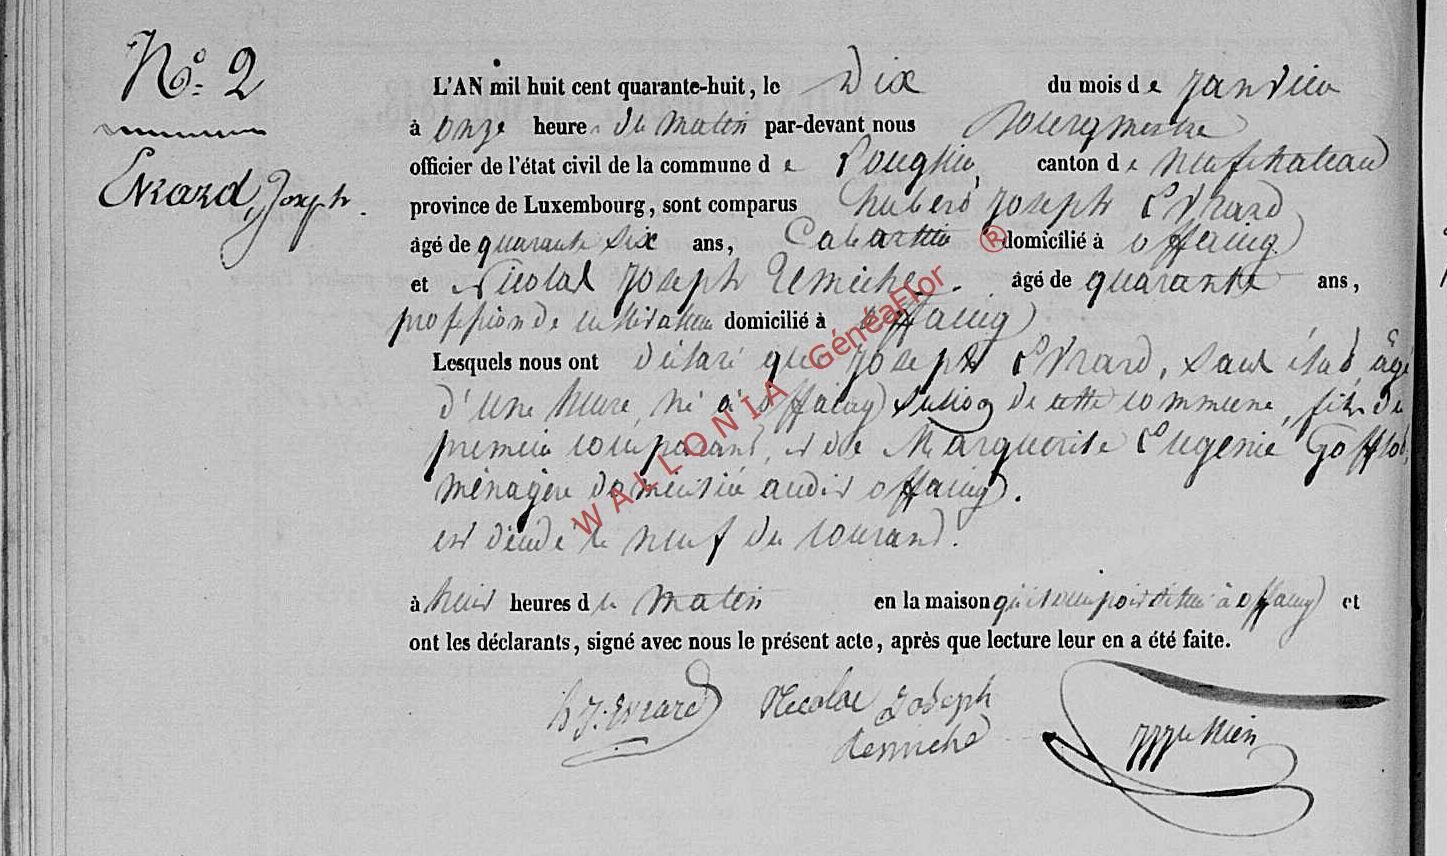 No. 2
Evrard, Joseph.
L'AN mil huit cent quarante-huit, le Dix du mois de Janvier
à onze heures du matin par-devant nous Bourgmestre
officier de l'état civil de la commune de Longlier, canton de neufchateau
province de Luxembourg, sont comparus hubert joseph Evrard
âgé de quarante six ans, Cabartier domicilié à offaing
et Nicolas joseph Remiche. âgé de quarante ans,
profession de cultivateur domicilié à offaing
Lesquels nous ont déclaré que joseph Evrard, sans état, âgé
d'une heure, né à offaing section de cette commune, fils du
premier comparant, et de Marguerite Eugenie Gofflot,
ménagère domiciliée audit offaing.
est décédé le neuf du courant.
à huit heures du matin en la maison située à offaing et
ont les déclarants, signé avec nous le présent acte, après que lecture leur en a été faite.
h j. Evrard Nicolas Joseph
Remiche
WALLONIA GénéaFlor ®